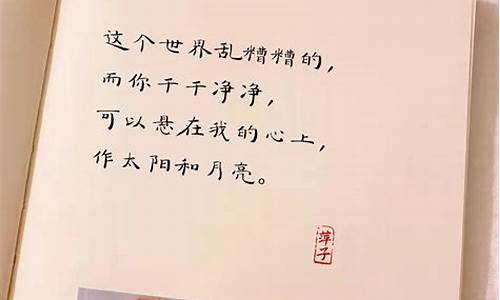 这个世界乱糟糟的，
而你干干净净，
可以悬在我的心上，
作太阳和月亮。
萍子